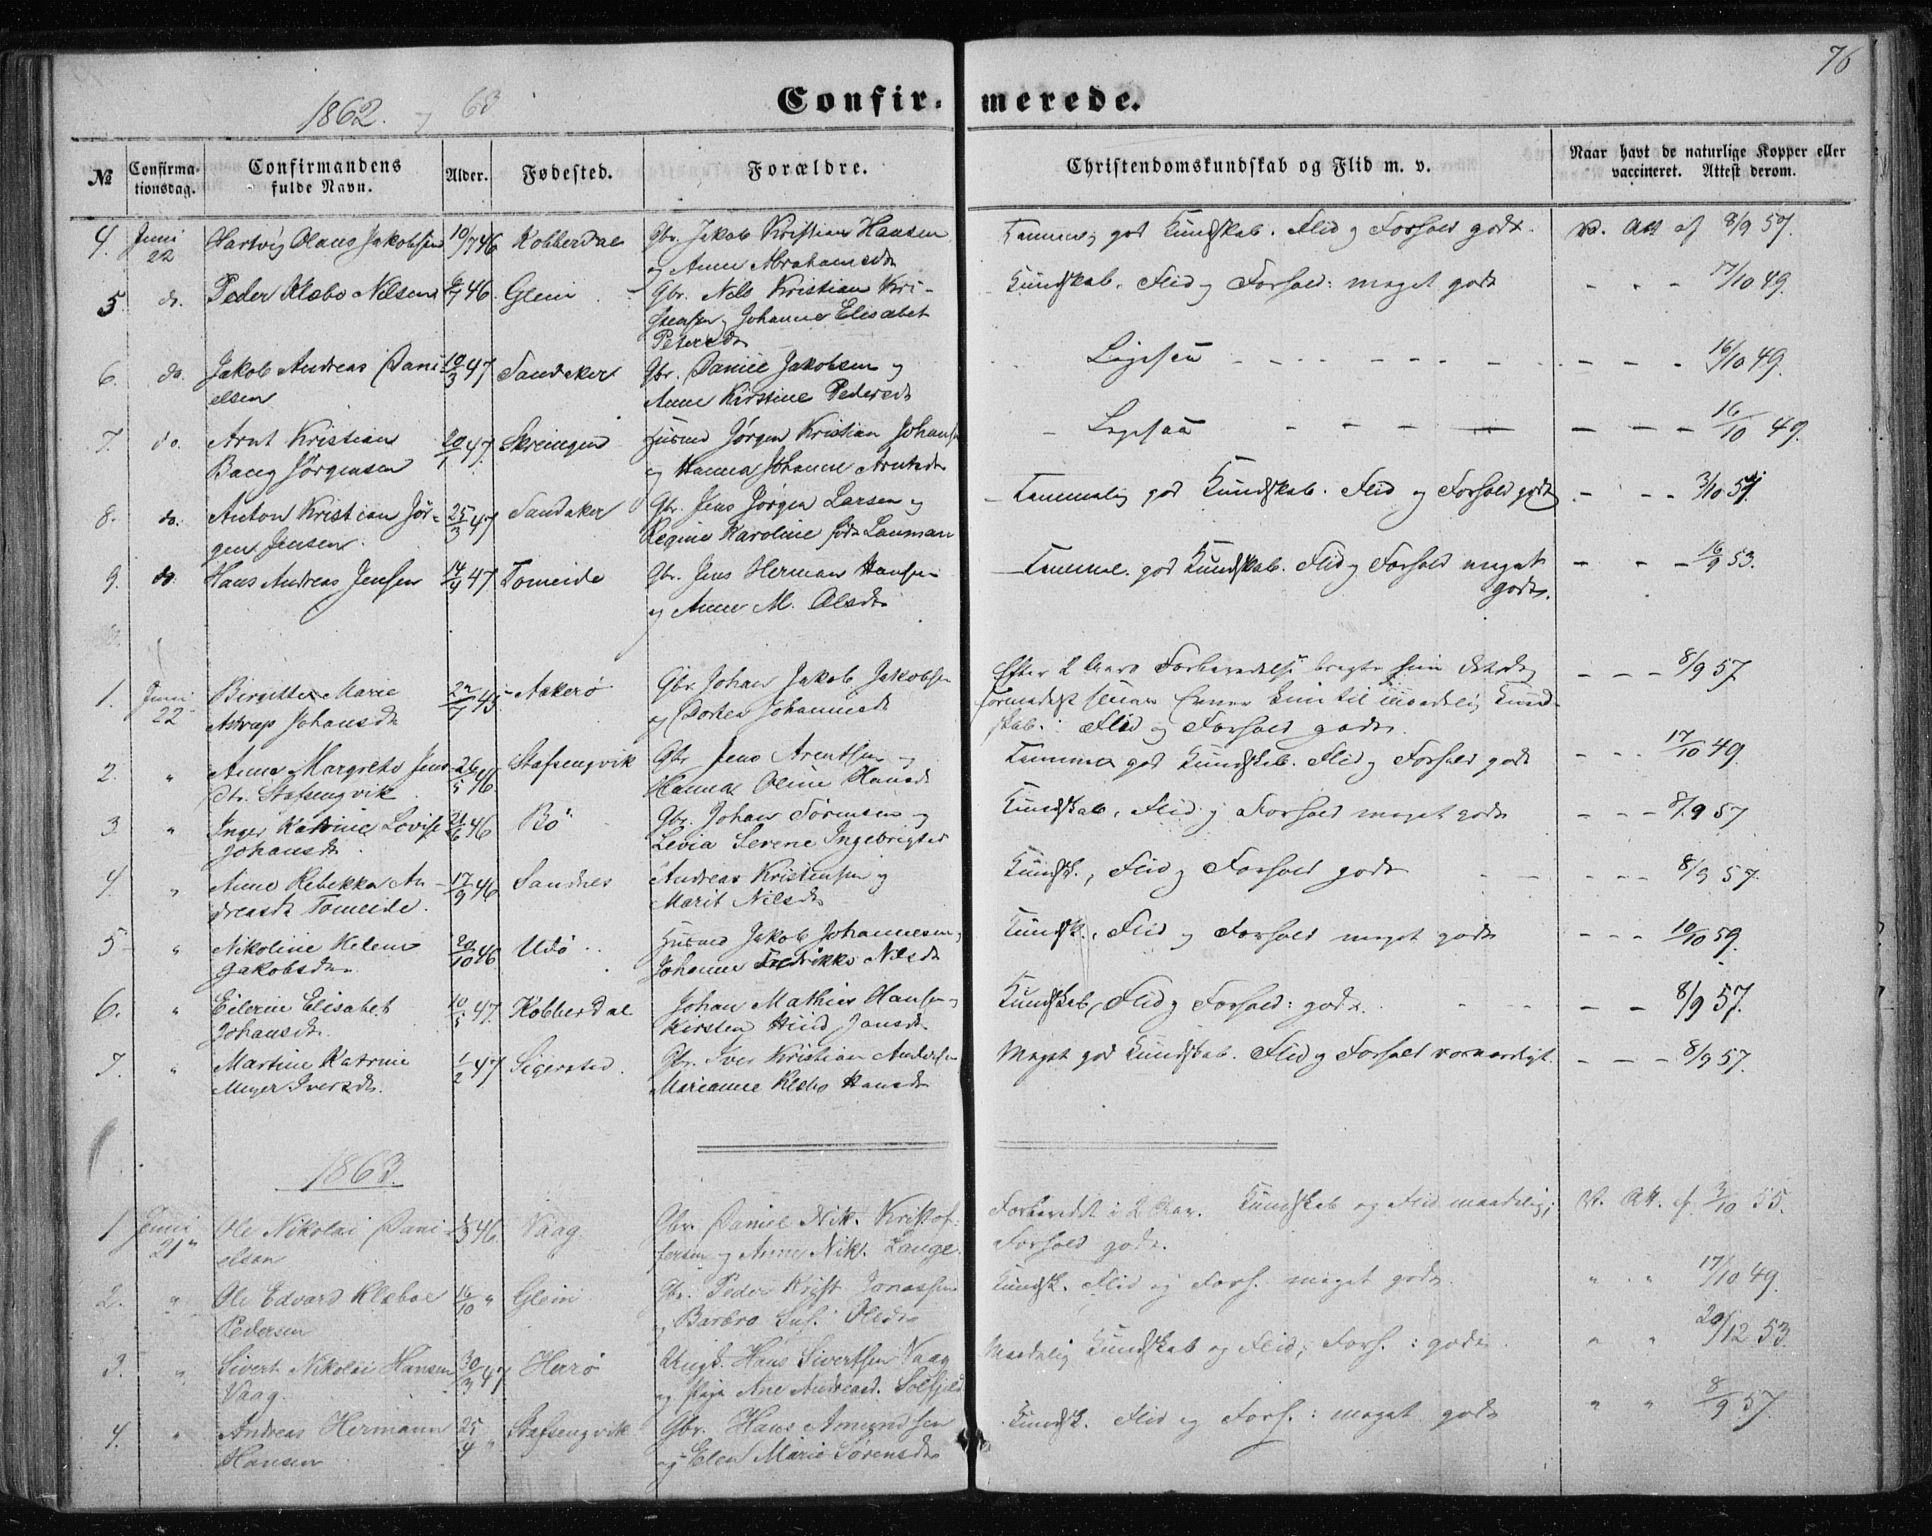 76
1862. og 63
Confirmerede.
№ Confirmationsdag. Confirmandens fulde Navn. Alder. Fødested. Forældre. Christendomskundskab og Flid m. v. Naar havt de naturlige Kopper eller vaccineret. Attest derom.
4. Juni 22 Hartvig Olaus Jakobsen 10/7 46 Kobberdal Gbr. Jakob Kristian Hansen og Anne Abrahamsdr Temmelig god Kundskab. Flid og Forhold godt. V. Att af 8/9 57.
5 do. Peder Klæbo Nilsen 46. Glein Gbr. Nils Kristian Kristensen og Johanne Elisabet Petersdr Kundskab, Flid og Forhold: meget godt - - - 17/10 49.
6. do. Jakob Andreas Danielsen 10/3 47 Sandaker Gbr. Daniel Jakobsen og Anne Kirstine Pedersdr Ligesaa - - - 16/10 49.
7. do. Arnt Kristian Bang Jørgensen 20/1 47. Skeingen Husmd Jørgen Kristian Johans og Hanna Johanne Arntsdr - Ligesaa - - - 16/10 49.
8. do. Anton Kristian Jørgen Jensen. 25/3 47 Sandaker Gbr. Jens Jørgen Larsen og Regine Karoline født Lauman Temmelig god Kundskab. Flid og Forhold godt - - - 3/10 57
9. do. Hans Andreas Jensen 14/4 47 Tomeide Gbr. Jens Herman Hansen og Anne M. Olsdr Temmel. god Kundskab. Flid og Forhold meget godt. - - - 16/9 53.
1. Juni 22 Birgitte Marie Astrup Johansdr 45 Aakerø Gbr Johan Jakob Jakobsen og Dorthea Johannesdr Efter 2 Aars Forberedelse bragte sin formedelst Evner kun til maadelig Kundskab. Flid og Forhold godt. - - - 8/9 57
2. " Anne Margrete Jensdtr. Stafsengvik 26/5 46 Stafsengvik Gbr Jens Arentsen og Hanna Oline Hansdr Temmel god Kundskab. Flid og Forhold godt - - - 17/10 49.
3 " Inger Katrine Lovise Johansdr. 21/6 46 Bø Gbr. Johan Sørensen og Levia Serene Ingebrigtsd Kundskab, Flid og Forhold meget godt - - - 8/9 57
4. " Anne Rebekka Andreasdr Tomeide. 17/9 46 Sandnes Andreas Kristensen og Marit Nilsdr Kundsk., Flid og Forhold godt - - - 8/9 57.
5 " Nikoline Helene Jakobsdr. 20/10 46 Udø Husmd Jakob Johannesen og Johanne Fredrikke Nilsdr Kundsk., Flid og Forhold meget godt - - - 10/10 59.
6. " Eilerine Elisabet Johansdr. 10/5 47. Kobberdal Johan Mathias Hansen og Kirsten Hiid Jansdr Kundskab, Flid og Forhold: godt. - - 8/9 57.
7. " Martine Katrine Meyer Iversdr. 1/2 47 Sigersted. Gbr. Iver Kristian Andersen Marianne Klæbo Hansdr Meget god Kundskab. Flid og Forhold roesværdigt. - - - 8/9 57.
1863.
1 Juni 21 Ole Nikolai Danielsen 46. Vaag Gbr. Daniel Nik. Kristoffersen og Anne Nik. Lange. Forberedt i 2 Aar. Kundskab og Flid maadelig; Forhold godt. V. Att. af 3/10 55.
2. " Ole Edvard Klæboe Pedersen 16/10 " Glein Gbr. Peder Krist Jonassen og Barbro Sus. Olsdr Kundsk. Flid og Forh. meget godt. " " 17/10 49.
3. " Sivert Nikolai Hansen Vaag. 30/3 47 Herrø Ungk. Hans Sivertsen Vaag og Pige Ane Andreasd. Solfjeld Maadelig Kundskab og Flid; Forh.: godt. " " 20/12 53.
4. " Andreas Hermann Hansen 25/4 " Stafsengvik Gbr. Hans Amundsen og Elen Marie Sørensdr Kundsk. Flid og Forh.: meget godt " " 8/9 57.